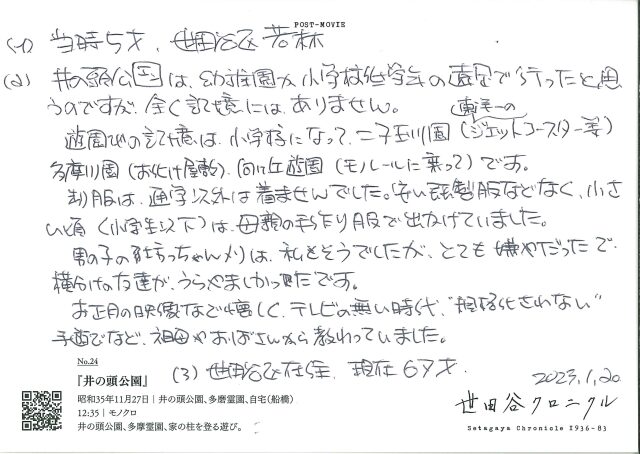 POST-MOVIE
(1) 当時5才、世田谷区若林
(2) 井の頭公園は、幼稚園か小学校低学年の遠足で行ったと思
うのですが、全く記憶にはありません。
東洋一の
遊園地の記憶は、小学校になって、二子玉川園(ジェットコースター等)
多摩川園(お化け屋敷)、向ヶ丘遊園(モノレールに乗って)です。
制服は、通学以外は着ませんでした。安い既製服などなく、小さ
い頃(小学生以下)は、母親の手作り服で出かけていました。
男の子の坊っちゃん刈りは、私もそうでしたが、とても嫌やだったで、
横分けの友達が、うらやましかったです。
お正月の映像など懐しく、テレビの無い時代、"規格化されない"
手まりなど、祖母やおばさんから教わっていました。
(3) 世田谷区在住、現在67才.
2023.1.20
No.24
『井の頭公園』
昭和35年11月27日|井の頭公園、多磨霊園、自宅(船橋)
12:35|モノクロ
井の頭公園、多摩霊園、家の柱を登る遊び。
世田谷クロニクル
Setagaya Chronicle 1936-83